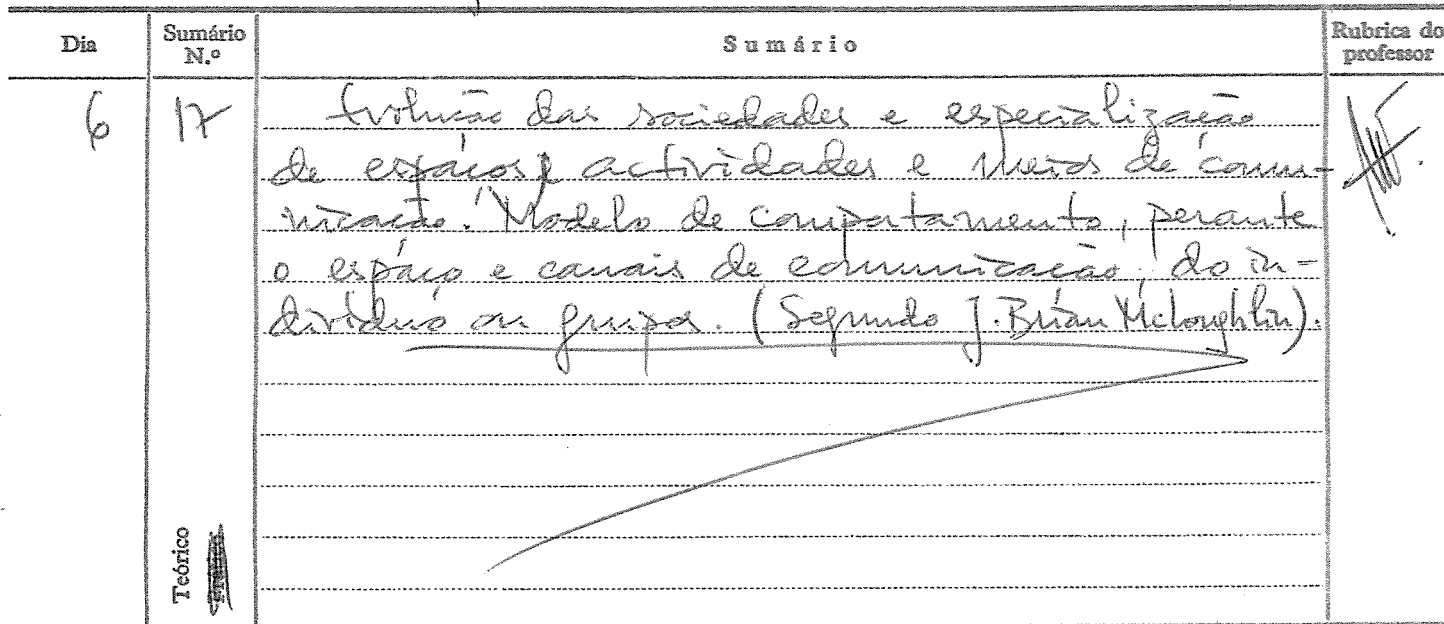 Dia
Sumário N.º
Sumário
Rubrica do professor
6
17
Evolução das sociedades e especialização
de espaços, actividades e meios de comu-
nicação. Modelo de comportamento, perante
o espaço e canais de comunicação, do in-
divíduo ou grupos. (Segundo J. Brian McLoughlin).
Teórico